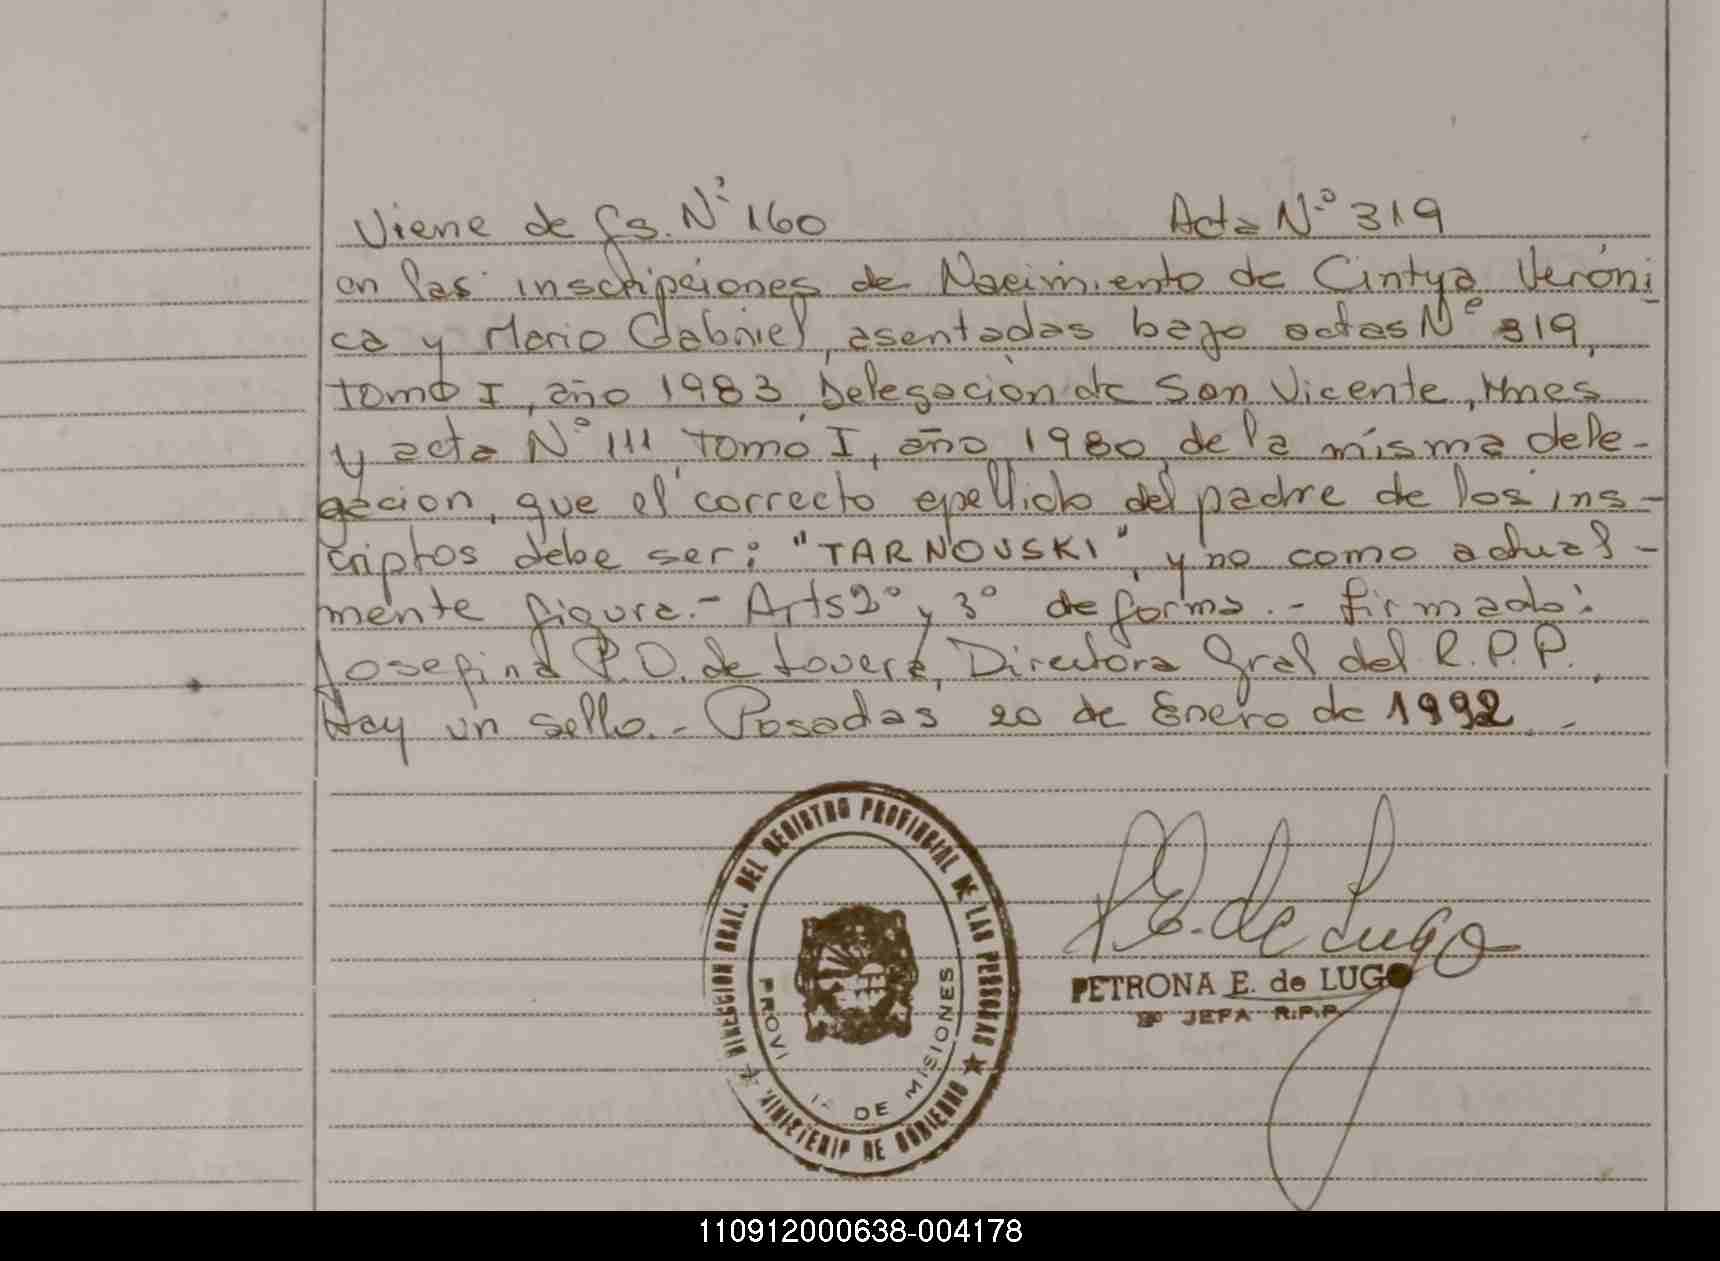 Viene de fs. Nº 160 Acta Nº 319
en las inscripciones de Nacimiento de Cintya Veróni
ca y Mario Gabriel, asentadas bajo actas Nº 319,
tomo I, año 1983, Delegación de San Vicente, Mnes
y acta Nº 111 tomo I, año 1980, de la misma dele-
gacion, que el correcto apellido del padre de los ins-
criptos debe ser: "TARNOUSKI", y no como actual-
mente figura.- Arts 2º y 3º de forma.- firmado:
Josefina P.O. de Lovera, Directora Gral del R.P.P.
Hay un sello.- Posadas 20 de Enero de 1992.-
DIRECCION GRAL. DEL REGISTRO PROVINCIAL DE LAS PERSONAS
MINISTERIO DE GOBIERNO
DE MISIONES
P.E. de Lugo
PETRONA E. de LUGO
JEFA R.P.P.
110912000638-004178